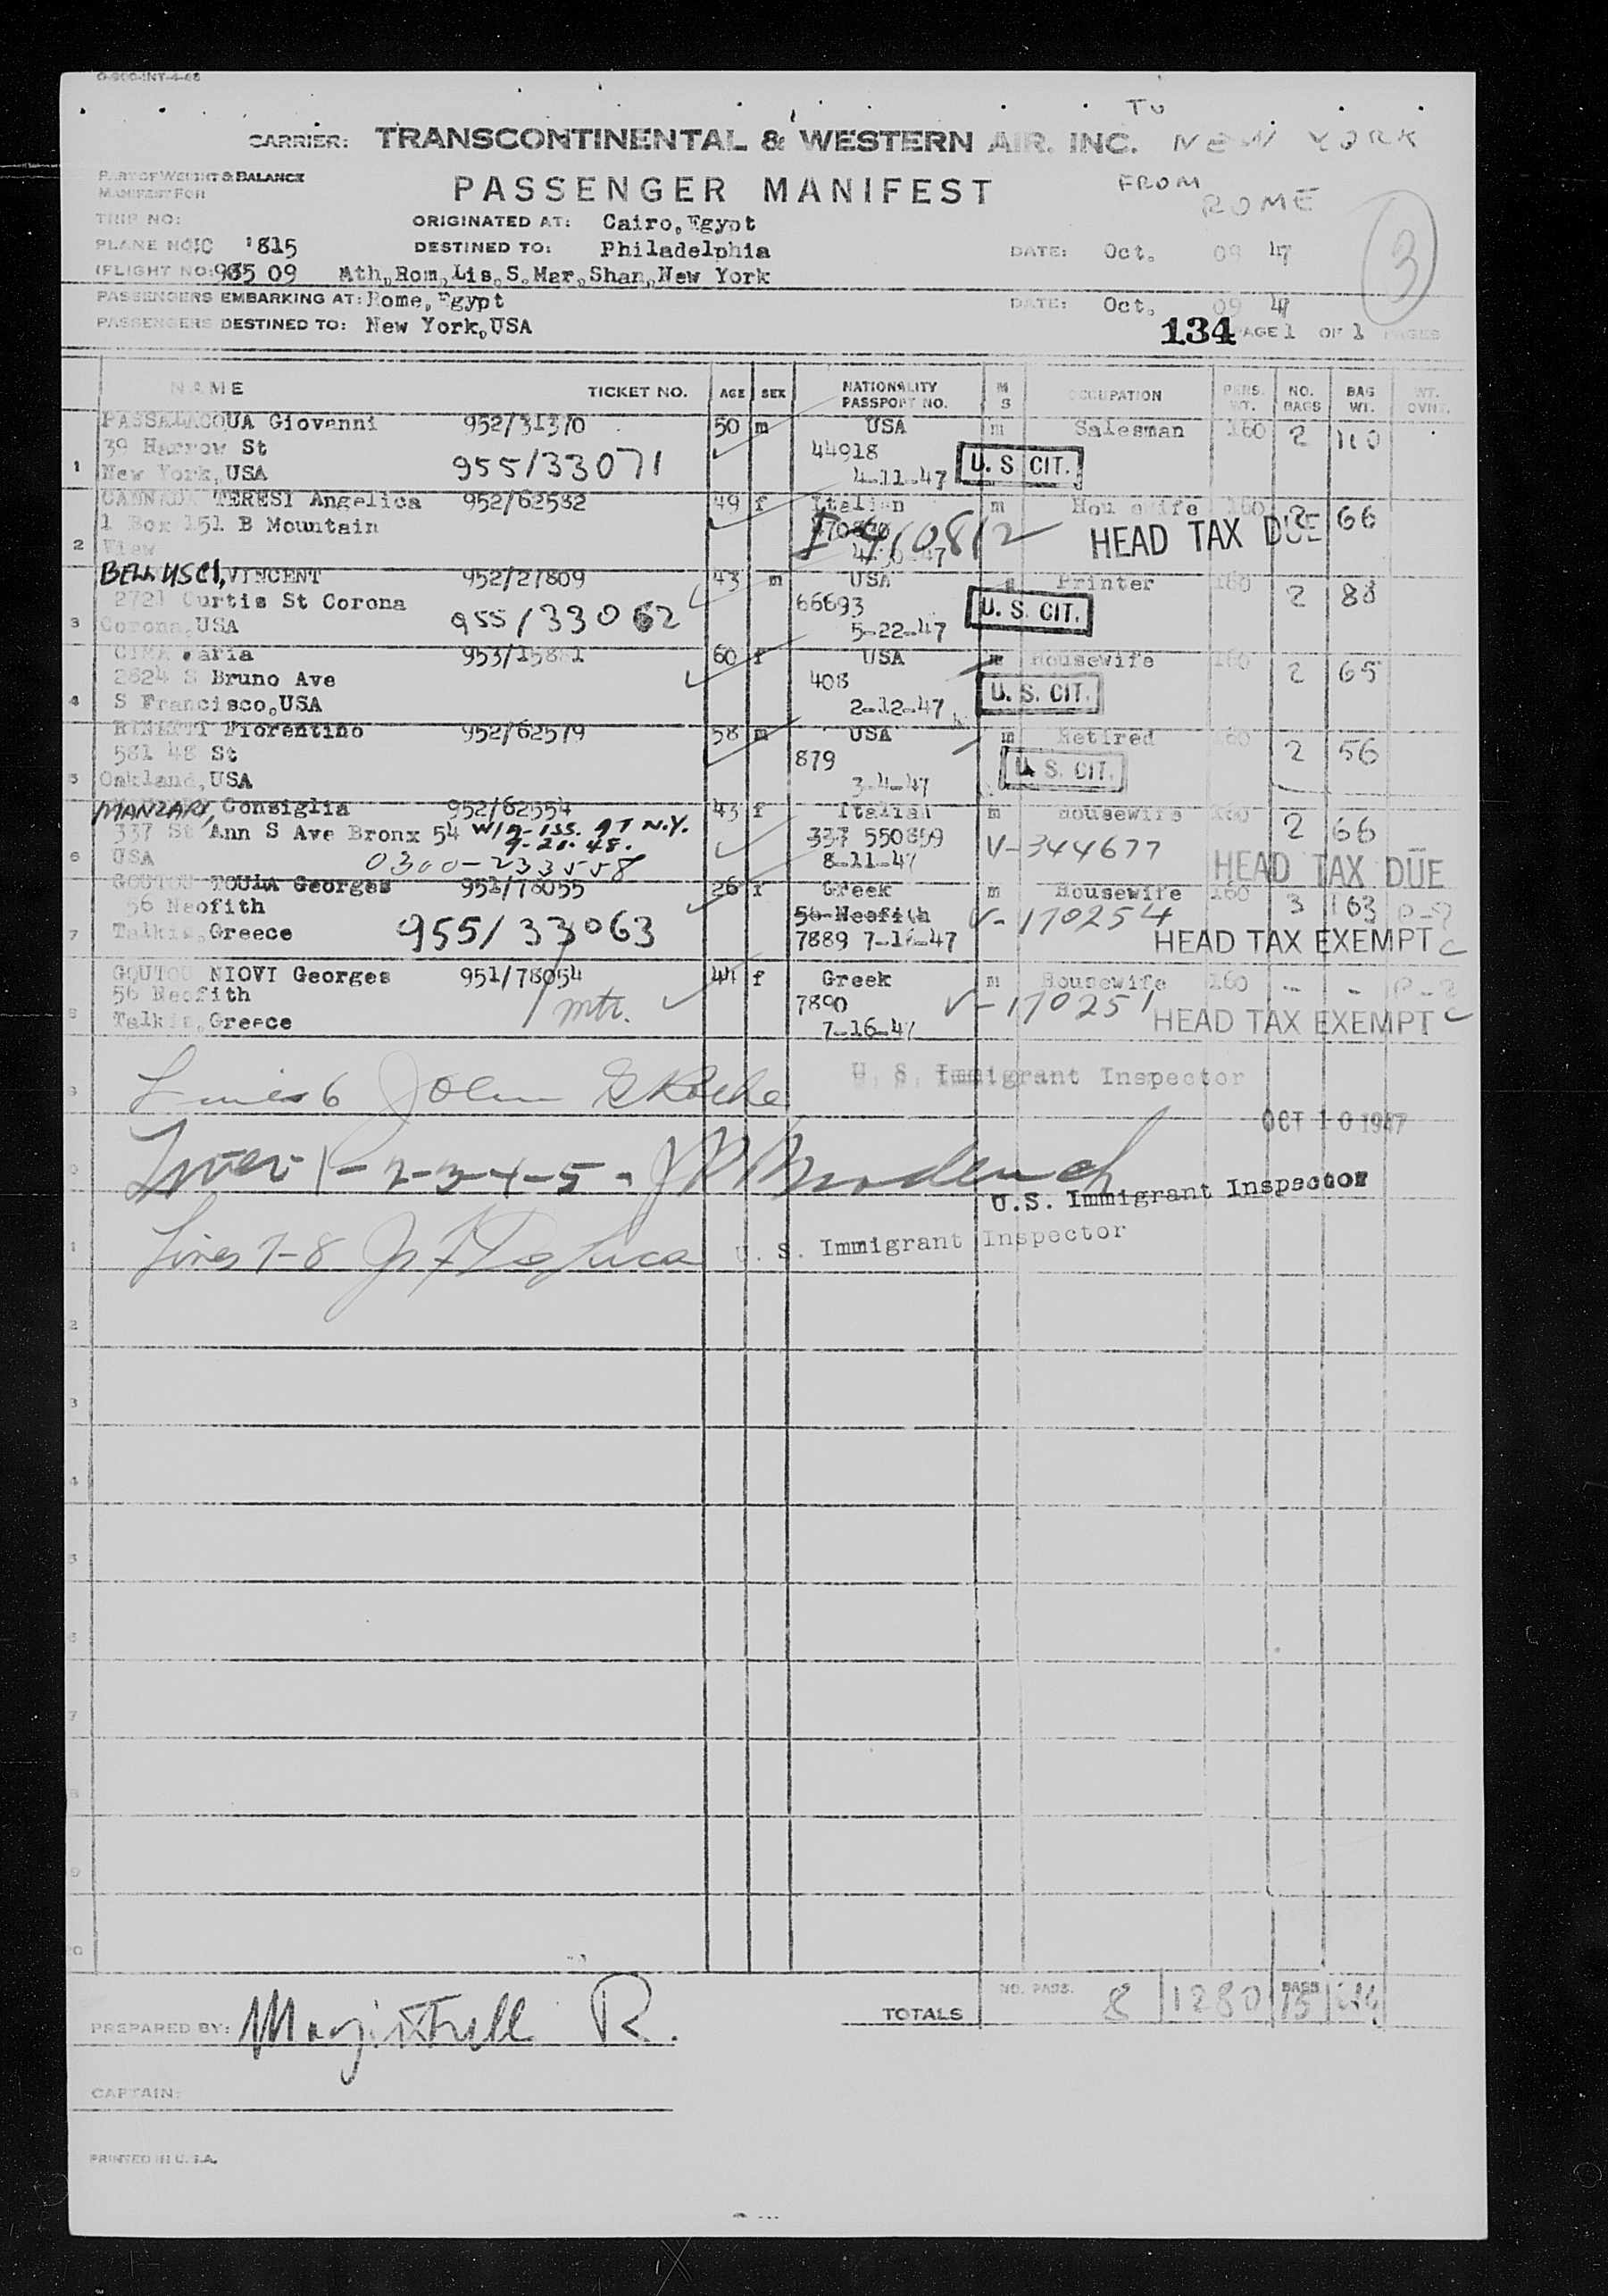 TO
CARRIER: TRANSCONTINENTAL & WESTERN AIR. INC. NEW YORK
PART OF WEIGHT & BALANCE
MANIFEST FOR
PASSENGER MANIFEST FROM ROME
TRIP NO: ORIGINATED AT: Cairo,Egypt
PLANE NO: '815 DESTINED TO: Philadelphia DATE: Oct. 09 47
(FLIGHT NO: 09 Ath,Rom,Lis,S.Mar,Shan,New York
3
PASSENGERS EMBARKING AT: Rome,Egypt DATE: Oct. 09 47
PASSENGERS DESTINED TO: New York,USA 134 PAGE 1 OF 1 PAGES
NAME TICKET NO. AGE SEX NATIONALITY PASSPORT NO. M S OCCUPATION PERS. WT. NO. BAGS BAG WT. WT. OVNT.
PASSALACQUA Giovanni 952/31370 50 m USA m Salesman 160 2 110
39 Harrow St 44918 U. S CIT.
1 New York,USA 955/33071 4-11-47
CANNADA TERESI Angelica 952/62582 49 f Italian m Housewife 160 2 66
1 Box 151 B Mountain HEAD TAX DUE
2 View
BELLUSCI, VINCENT 952/27809 43 m USA Printer 160 2 88
2721 Curtis St Corona 66693 U. S. CIT.
3 Corona,USA 955/33062 5-22-47
CIMA Maria 953/15881 60 f USA m Housewife 160 2 65
2824 S Bruno Ave 408
4 S Francisco,USA 2-12-47 U. S. CIT.
Fiorentino 952/62579 58 m USA m Retired 160 2 56
581 48 St 879
5 Oakland,USA 3-4-47 U. S. CIT.
MANZARI, Consiglia 952/62554 43 f Italian m Housewife 160 2 66
337 St Ann S Ave Bronx 54 W/A-ISS. AT N.Y. 337 550859 V-344677
9-21-48.
6 USA 0300-233558 8-11-47 HEAD TAX DUE
GOUTOU TOULA Georges 951/78055 26 f Greek m Housewife 160 3 163
56 Neofith 56 Neofith V-170254
7 Talkis,Greece 955/33063 7889 7-16-47 HEAD TAX EXEMPT
GOUTOU NIOVI Georges 951/78054 44 f Greek m Housewife 160 - -
56 Neofith 7890 V-170251
8 Talkis,Greece mtr. 7-16-47 HEAD TAX EXEMPT
9 Lines 6 John U. S. Immigrant Inspector
OCT 10 1947
Lines 1-2-3-4-5-
U.S. Immigrant Inspector
Lines 7-8 U. S. Immigrant Inspector
2
3
4
5
6
7
8
9
TOTALS NO. PASS. 8 1280 BAGS 15
PREPARED BY: R.
CAPTAIN:
PRINTED IN U.S.A.